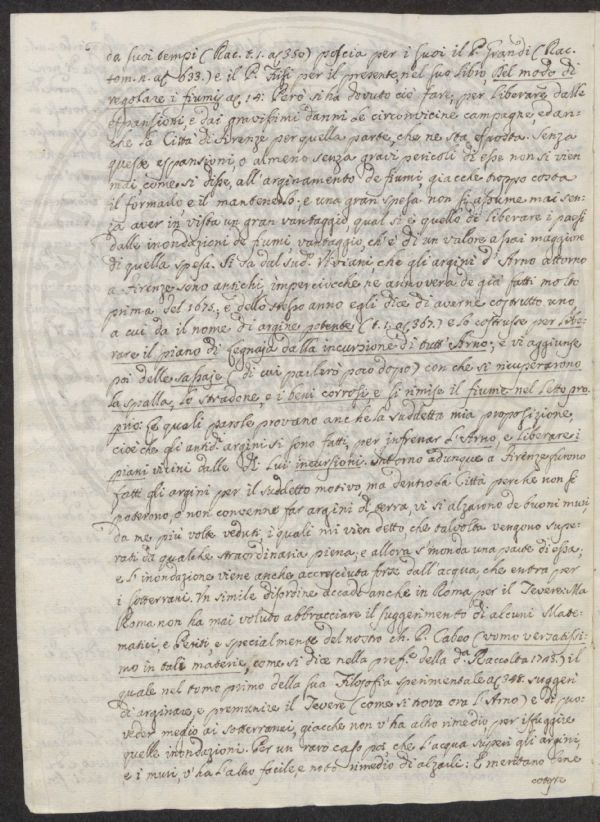 da suoi tempi (Rac. t. 1. a c. 350) poscia per i suoi il P. Grandi (Rac.
tom. 2. a c. 633.) e il P. Frisi per il presente nel suo libro, Del modo di
regolare i fiumi a c. 14: Però si ha dovuto ciò fare, per liberare dalle
espansioni, e dai gravissimi danni le circonvicine campagne, ed an-
che la Città di Firenze per quella parte, che ne sta esposta. Senza
queste espansioni, o almeno senza gravi pericoli di esse non si vien
mai, come si disse, all'arginamento de fiumi, giacche troppo costa
il formarlo e il mantenerlo; e una gran spesa non si assume mai sen-
za aver in vista un gran vantaggio, qual si è quello di liberare i paesi
dalle inondazioni de fiumi, vantaggio, ch'è di un valore assai maggiore
di quella spesa. Si sa dal sud.o Viviani, che gli argini d'Arno attorno
a Firenze sono antichi, imperciocche ne annovera de già fatti molto
prima del 1675; e dello stesso anno egli dice di averne costrutto uno
a cui da il nome di argine potente (t. 1. a c. 367.) e lo costrusse per libe-
rare il piano di Legnaja dalla incursione di tutt'Arno; e vi aggiunse
poi delle sassaje (di cui parlerò poco dopo) con che si ricuperarono
la spalla, lo stradone, e i beni corrosi e si rimise il fiume nel letto pro-
prio: le quali parole provano anche la suddetta mia proposizione,
cioè che gli antid. argini si sono fatti, per infrenar l'Arno, e liberare i
piani vicini dalle di lui incursioni. Intorno adunque a Firenze furono
fatti gli argini per il suddetto motivo, ma dentro la Città perche non si
poterono, o non convenne far argini di terra, vi si alzarono de buoni muri,
da me più volte veduti, i quali mi vien detto che talvolta vengono supe-
rati da qualche straordinaria piena; e allora s'inonda una parte di essa;
e si inondazione viene anche accresciuta forse dall'acqua, che entra per
i sotterrani. Un simile disordine accade anche in Roma per il Tevere: Ma
Roma non ha mai voluto abbracciare il suggerimento di alcuni Mate-
matici, e Periti, e specialmente del nostro ch. P. Cabeo (uomo versatissi-
mo in tali materie, come si dice nella pref.e della d.a Raccolta 1765.) il
quale nel tomo primo della sua Filosofia sperimentale a c. 348. suggerì
di arginare, e premunire il Tevere (come si trova ora l'Arno) e di prov-
veder medio ai sotterranei, giacche non v'ha altro rimedio per isfuggire
quelle inondazioni. Per un raro caso poi che l'acqua superi gli argini,
e i muri, v'ha l'altro facile, e noto rimedio di alzarli: E meritano bene
coteste